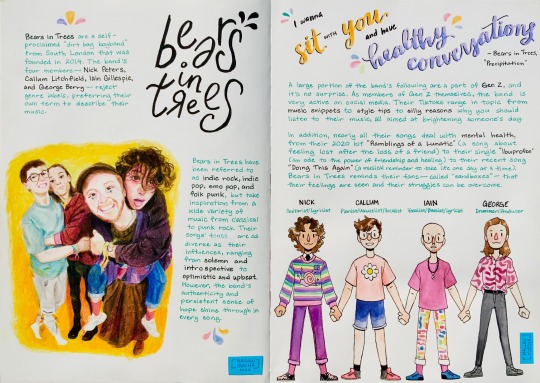 Bears in Trees are a self-
proclaimed "dirtbag boyband"
from South London that was
founded in 2014. The band's
four members — Nick Peters,
Callum Litchfield, Iain Gillespie,
and George Berry — reject
genre labels, preferring their
own term to describe their
music.
bears
in
trees
Bears in Trees have
been referred to
as indie rock, indie
pop, emo pop, and
folk punk, but take
inspiration from a
wide variety of
music from classical
to punk rock. Their
songs' tones are as
diverse as their
influences, ranging
from solemn and
introspective to
optimistic and upbeat.
However, the band's
authenticity and
persistent sense of
hope shine through in
every song.
I wanna
sit with you, and have
healthy
conversations
— Bears in Trees,
"Precipitation"
A large portion of the band's following are a part of Gen Z, and
it's no surprise. As members of Gen Z themselves, the band is
very active on social media. Their TikToks range in topic from
music snippets to style tips to silly reasons why you should
listen to their music, all aimed at brightening someone's day.
In addition, nearly all their songs deal with mental health,
from their 2020 hit "Ramblings of a Lunatic" (a song about
feeling lost after the loss of a friend) to their single "Ibuprofen"
(an ode to the power of friendship and healing) to their recent song
"Doing This Again" (a musical reminder to take life one day at a time).
Bears in Trees reminds their fans — called "sandboxes" — that
their feelings are seen and their struggles can be overcome.
NICK
CALLUM
IAIN
GEORGE
Guitarist/Lyricist
Drummer/Producer